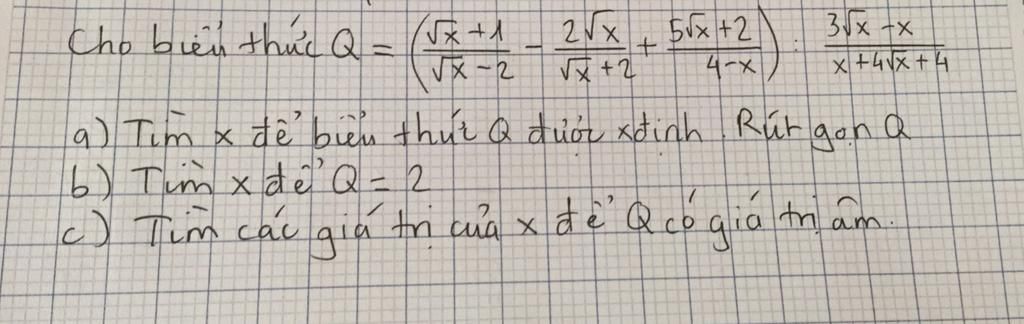 Cho biểu thức Q = (\frac{\sqrt{x}+1}{\sqrt{x}-2} - \frac{2\sqrt{x}}{\sqrt{x}+2} + \frac{5\sqrt{x}+2}{4-x}) : \frac{3\sqrt{x}-x}{x+4\sqrt{x}+4}
a) Tìm x để biểu thức Q được xđịnh. Rút gọn Q
b) Tìm x để Q = 2
c) Tìm các giá trị của x để Q có giá trị âm.